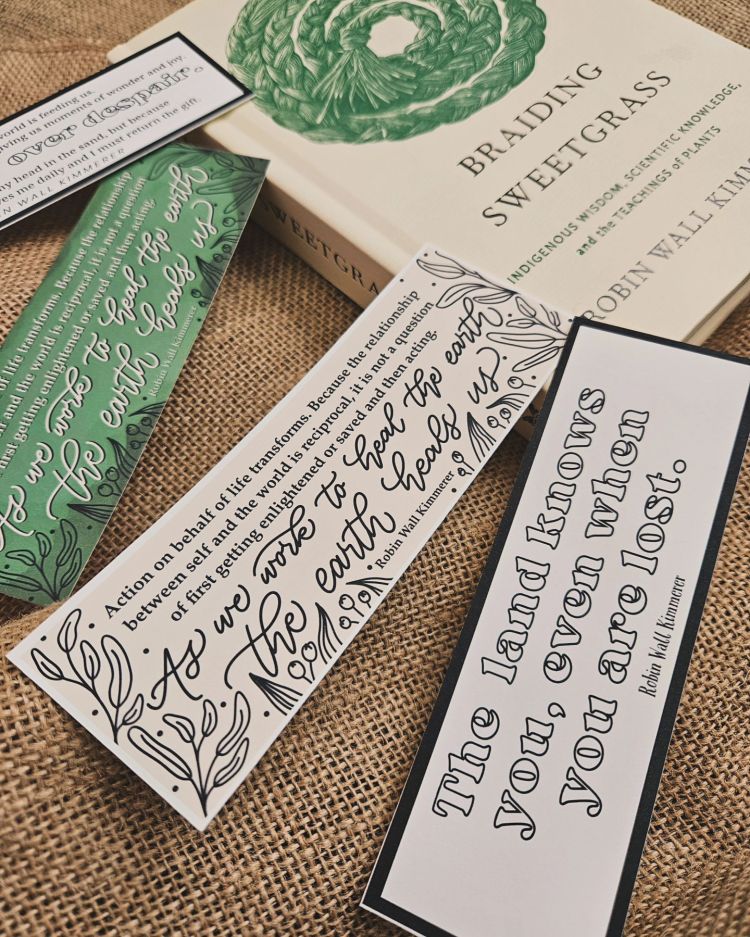 world is feeding us,
giving us moments of wonder and joy.
over despair.
my head in the sand, but because
me daily and I must return the gift.
WALL KIMMERER
BRAIDING
SWEETGRASS
INDIGENOUS WISDOM, SCIENTIFIC KNOWLEDGE,
and the TEACHINGS of PLANTS
ROBIN WALL
SWEETGRA
of life transforms. Because the relationship
self and the world is reciprocal, it is not a question
first getting enlightened or saved and then acting.
As we work to heal the earth
the earth heals us
Robin Wall Kimmerer
Action on behalf of life transforms. Because the relationship
between self and the world is reciprocal, it is not a question
of first getting enlightened or saved and then acting.
As we work to heal the earth
the earth heals us
Robin Wall Kimmerer
The land knows
you, even when
you are lost.
Robin Wall Kimmerer